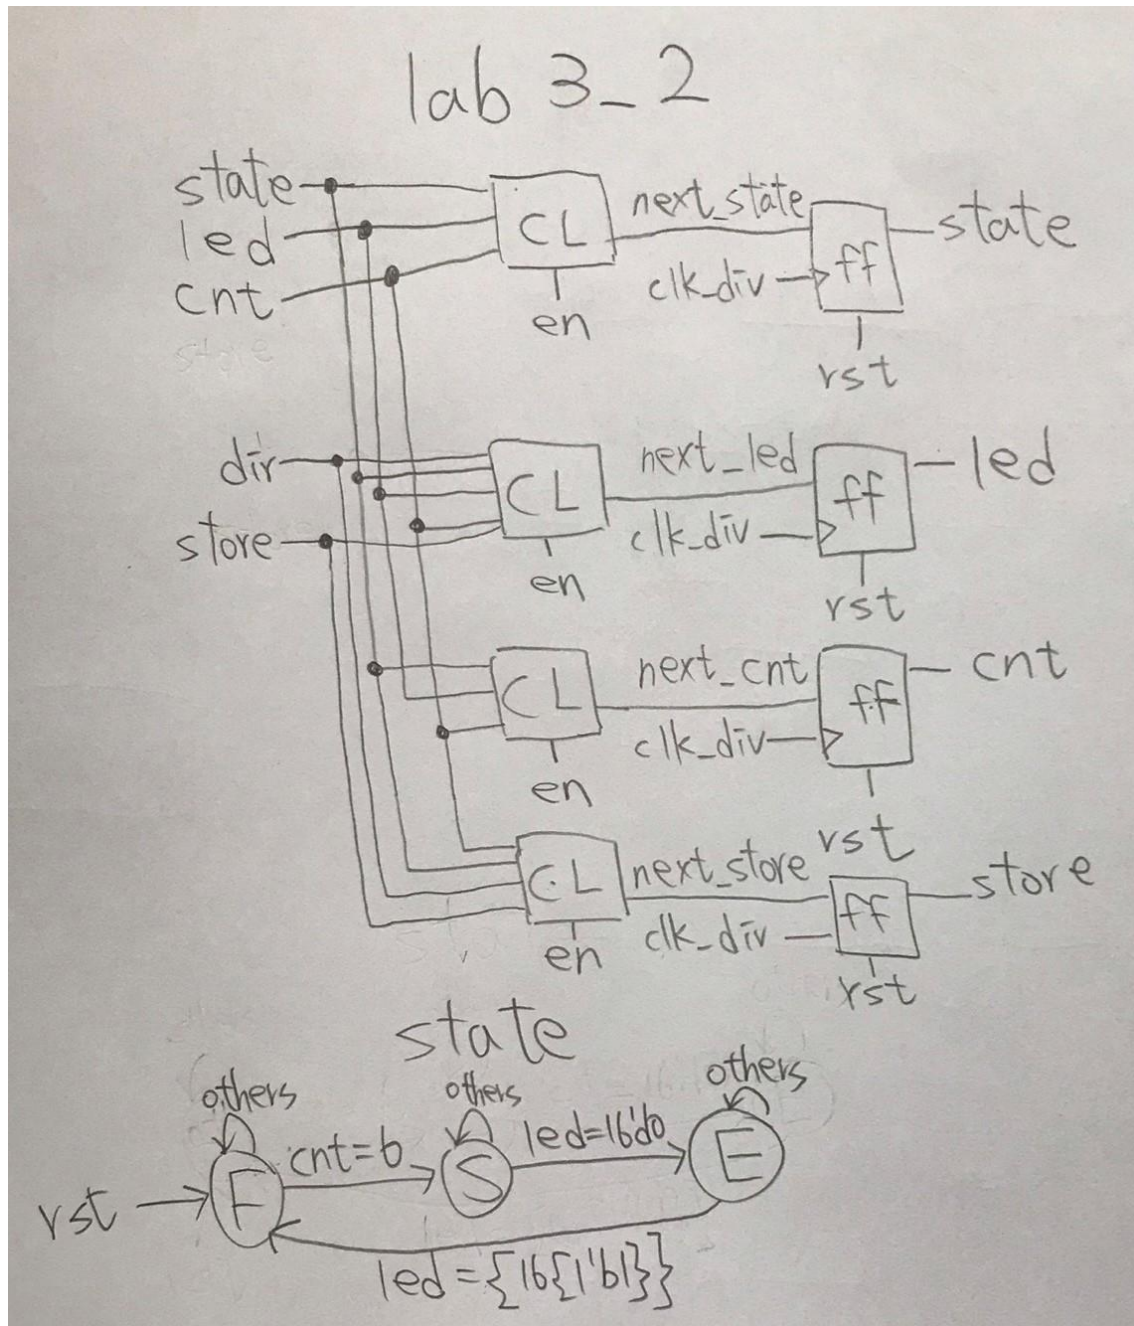 lab 3_2
state
led
cnt
CL
en
next_state
clk_div
ff
rst
state
dir
store
CL
en
next_led
clk_div
ff
rst
led
CL
en
next_cnt
clk_div
ff
rst
cnt
CL
en
next_store
clk_div
ff
rst
store
state
others
others
others
rst
F
cnt=6
S
led=16'd0
E
led={16{1'b1}}